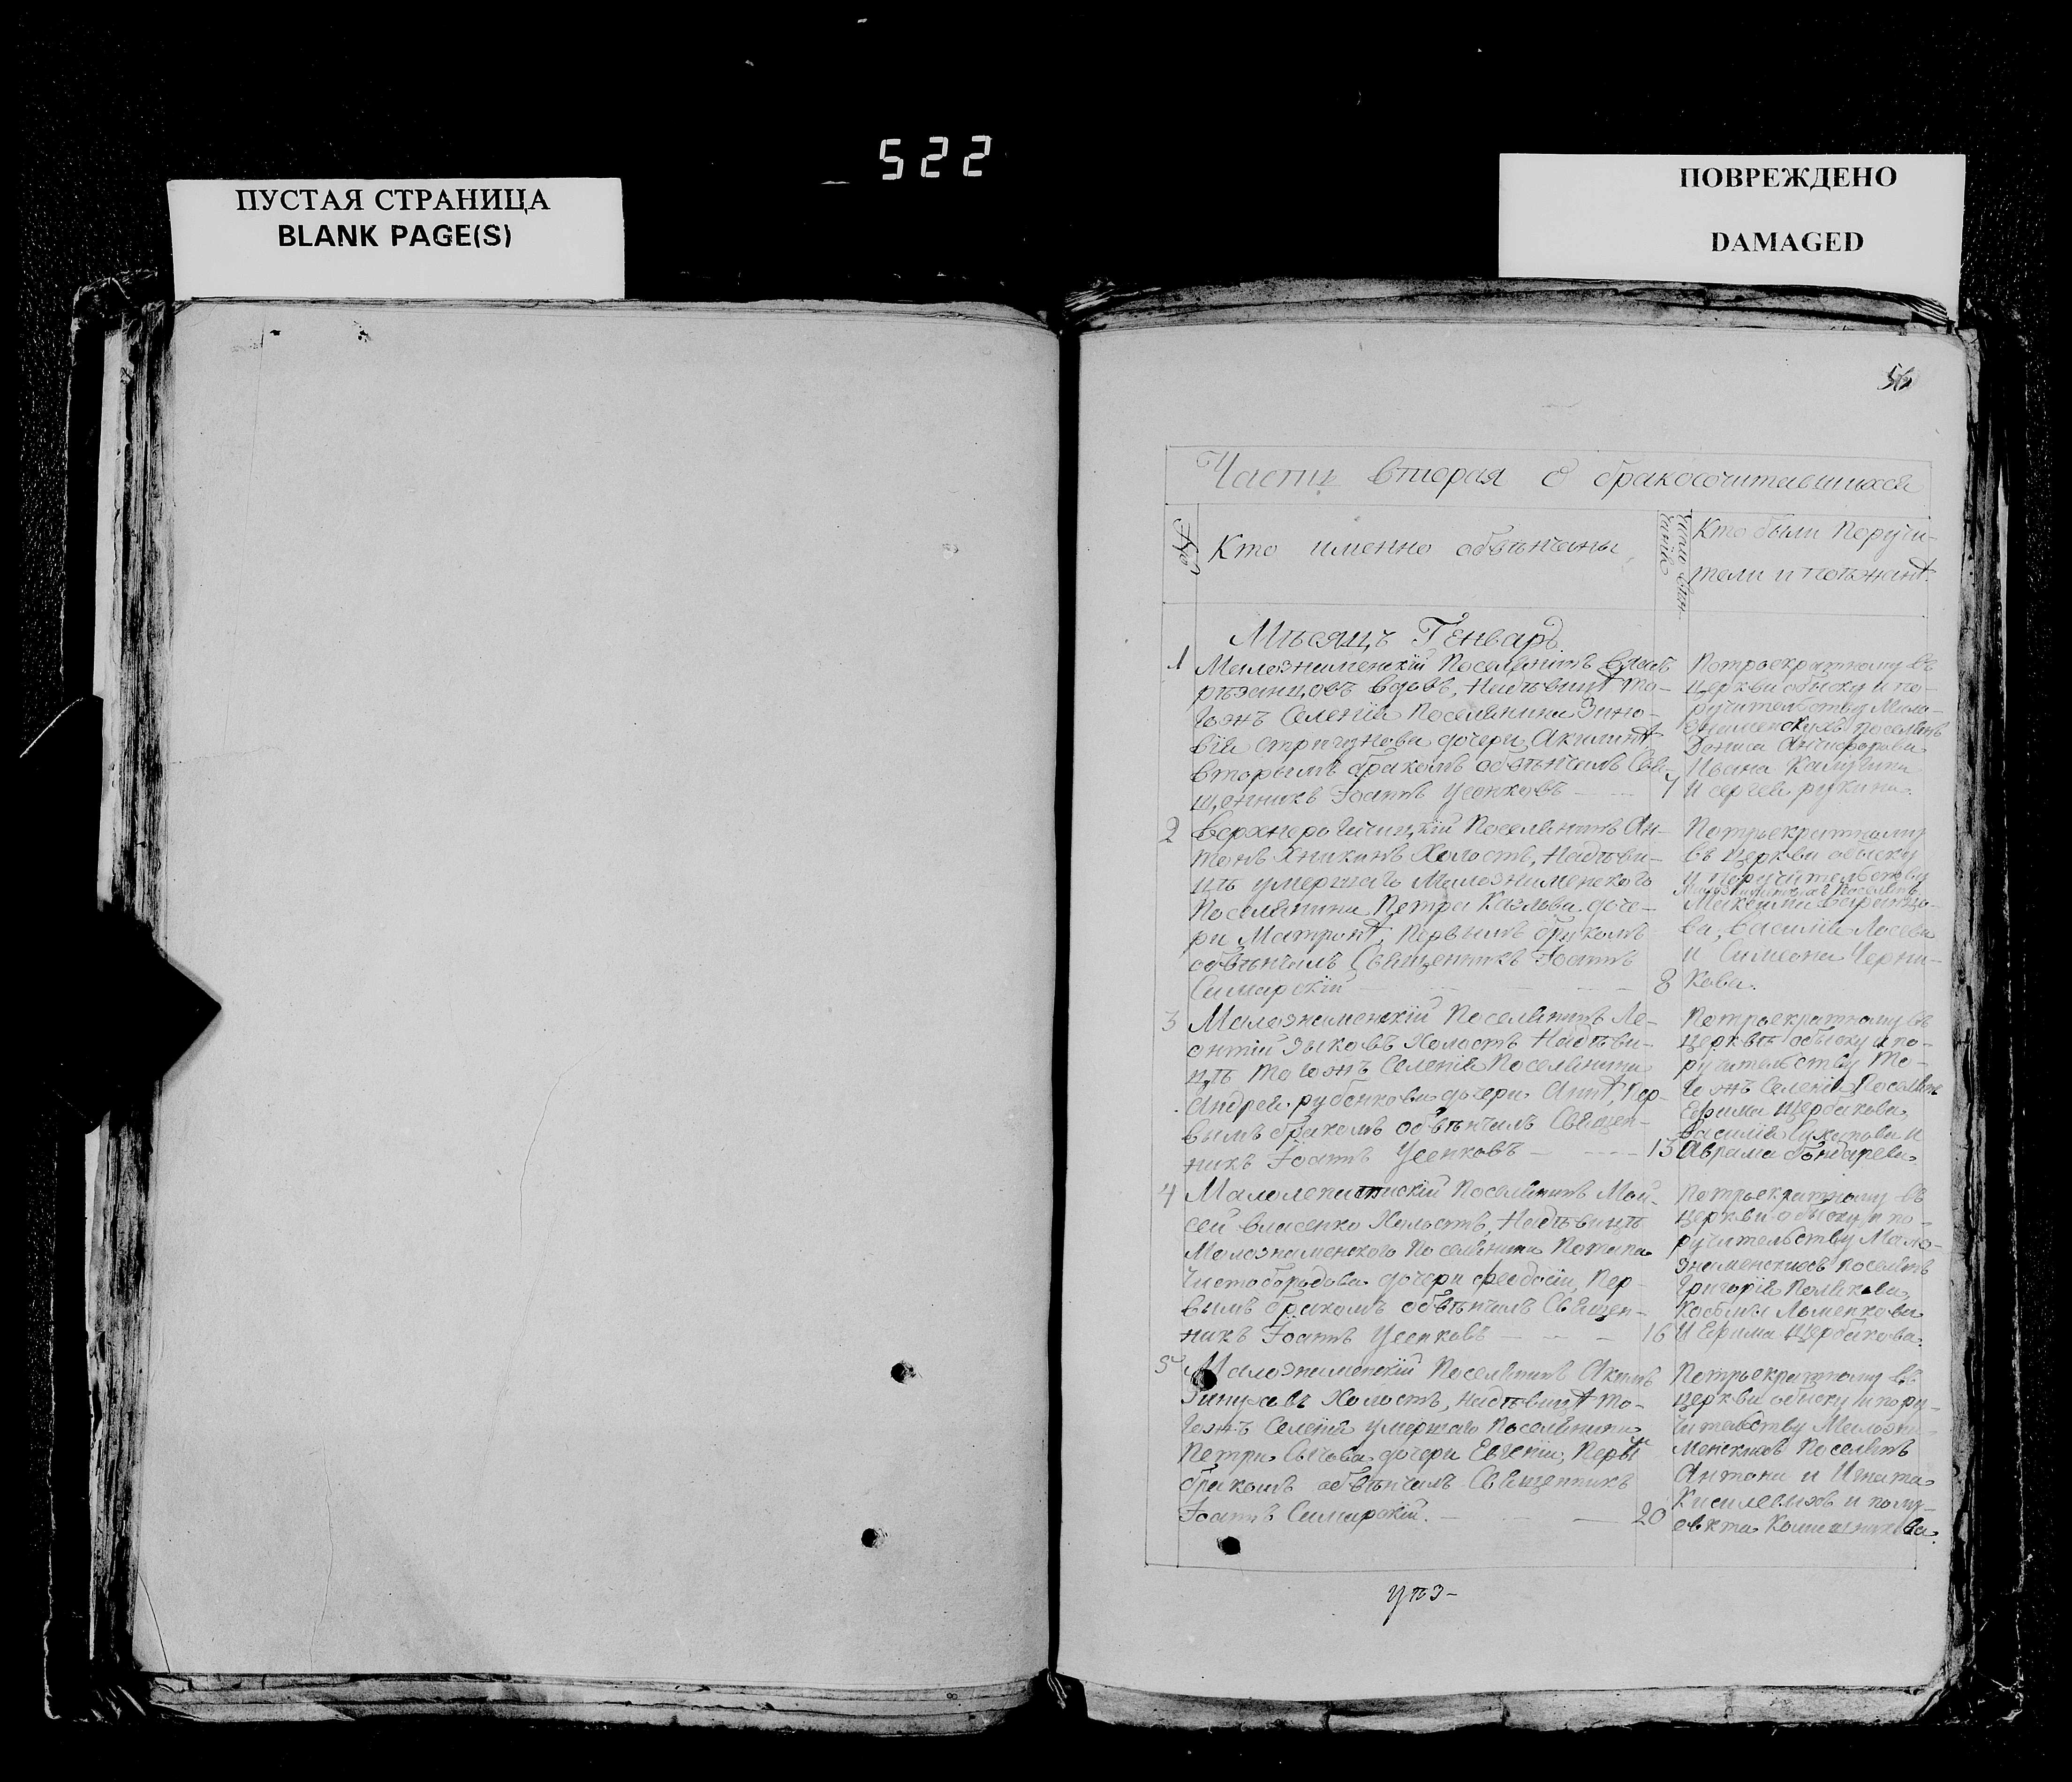 522
ПУСТАЯ СТРАНИЦА
BLANK PAGE(S)
ПОВРЕЖДЕНО
DAMAGED
56
Часть вторая о бракосочитавшихся
Кто именно обвѣнчаны
Число вѣнчанія
Кто были Поручи-
тели и
Мѣсяцъ Генварь
1
Малознаменскій Поселянинъ Власъ
рѣзанцовъ вдовъ, Надѣвицѣ то-
гожъ Селенія Поселянина Зино-
вія стригунова дочери Акилинѣ
вторымъ бракомъ обвѣнчалъ Свя-
щенникъ Іоаннъ Усенковъ
7
Потроекратному въ
церкви обыску и по-
ручительству Мало-
знаменскихъ поселянъ
Дениса Анциферова
Ивана Калугина
и сергея рукина.
2
Верхнерогачицкій Поселянинъ Ан-
тонъ Холостъ, Надѣви-
цѣ умершаго Малознаменского
Поселянина Петра Казлова доче-
ри Матронѣ, Первымъ бракомъ
обвѣнчалъ Священникъ Іоаннъ
Самарскій
8
Потроекратному
въ церкви обыску
и поручительству
Малознаменскихъ Поселянъ
Максима
ва, василія Лосева
и Симеона Черни-
кова.
3
Малознаменскій Поселянинъ Ле-
онтій Зыковъ Холостъ Надѣви-
цѣ тогожъ Селенія Поселянина
Андрея рубенкова дочери Аннѣ, Пер-
вымъ бракомъ обвѣнчалъ Священ-
никъ Іоаннъ Усенковъ
15
Потроекратному въ
церквѣ обыску и по-
ручительству то-
гожъ Селенія Поселянъ
Ефима Щербакова,
василія и
Аврама бондарева
4
Малолепатиский Поселянинъ Мои-
сей власенко Холостъ, Надѣвицѣ
Малознаменского Поселянина Потапа
Чистобородова дочери феодосіи, Пер-
вымъ бракомъ обвѣнчалъ Священ-
никъ Іоаннъ Усенковъ
16
Потроекратному въ
церкви обыску и по-
ручительству Мало-
знаменскихъ поселянъ
Григорія Полякова,
Косьмы
И Ефима Щербакова.
5
Малознаменскій Поселянинъ Акимъ
Холостъ, Надѣвицѣ то-
гожъ Селенія умершаго Поселянина
Петра Сычова дочери Евгеніи, Первы
бракомъ обвѣнчалъ Священникъ
Іоаннъ Самарскій.
20
Потроекратному въ
церкви обыску и пору-
чительству Малозна-
менскихъ Поселянъ
Антона и Игната
и полу-
евкта
упз-